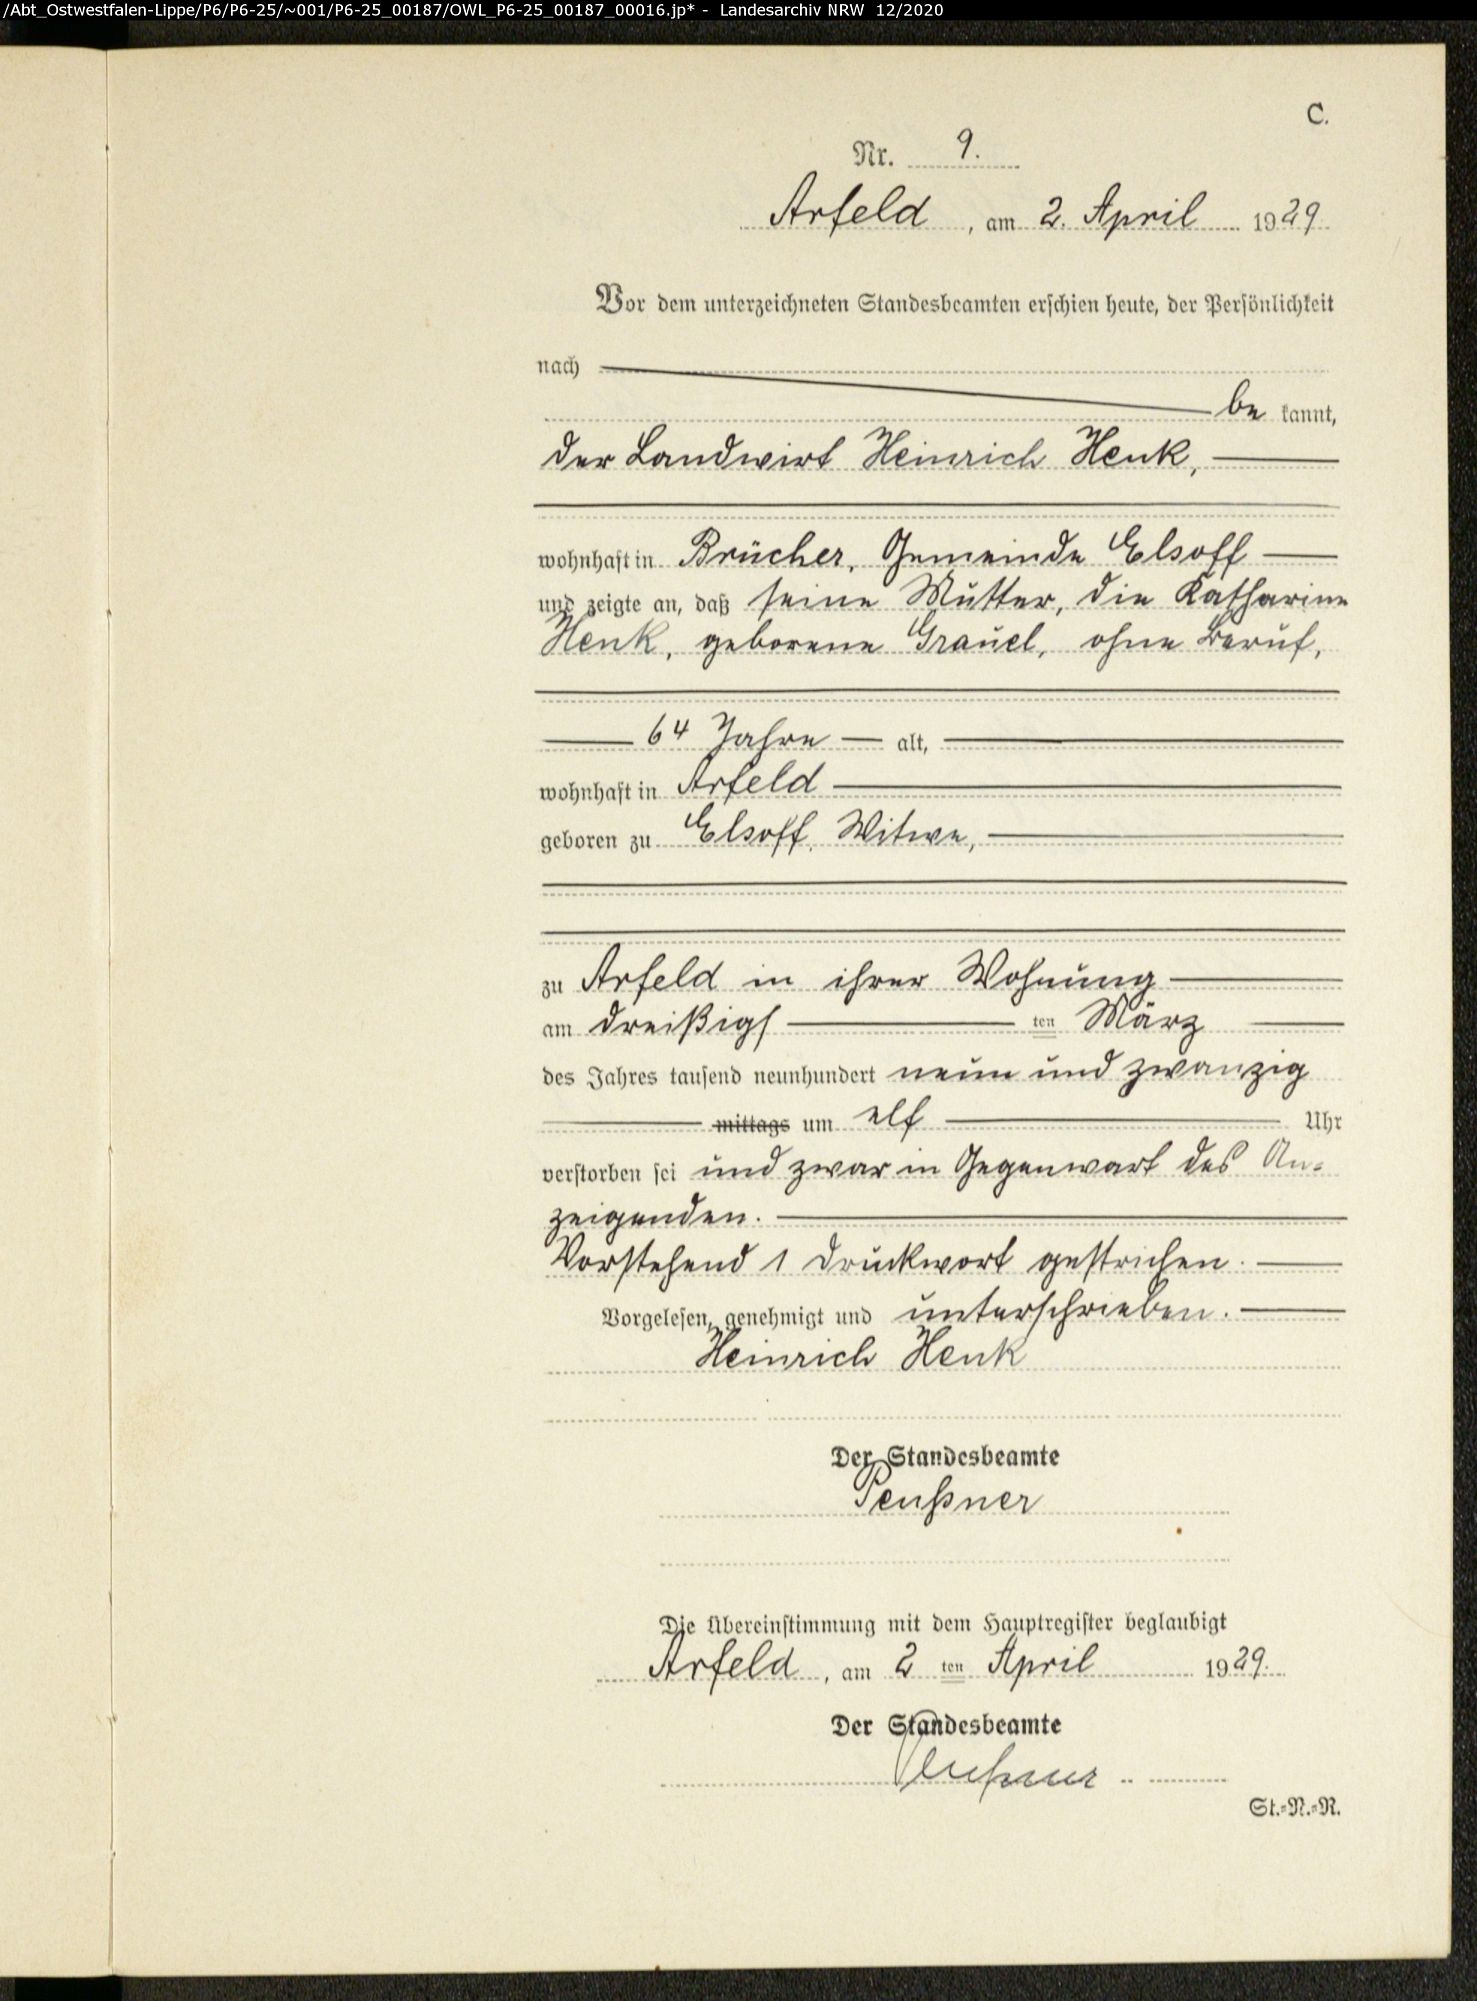 /Abt_Ostwestfalen-Lippe/P6/P6-25/~001/P6-25_00187/OWL_P6-25_00187_00016.jp* - Landesarchiv NRW 12/2020
C.
Nr. 9.
Arfeld, am 2. April 1929.
Vor dem unterzeichneten Standesbeamten erschien heute, der Persönlichkeit
nach
be kannt,
der Landwirt Heinrich Henk,
wohnhaft in Brücher, Gemeinde Elsoff
und zeigte an, daß seine Mutter, die Katharine
Henk, geborene Grauel, ohne Beruf,
64 Jahre alt,
wohnhaft in Arfeld
geboren zu Elsoff, Witwe,
zu Arfeld in ihrer Wohnung
am dreißigs ten März
des Jahres tausend neunhundert neun und zwanzig
mittags um elf Uhr
verstorben sei und zwar in Gegenwart des An-
zeigenden.
Vorstehend 1 Druckwort gestrichen.
Vorgelesen, genehmigt und unterschrieben.
Heinrich Henk
Der Standesbeamte
Peußner
Die Übereinstimmung mit dem Hauptregister beglaubigt
Arfeld, am 2 ten April 1929.
Der Standesbeamte
Peußner
St.-N.-R.